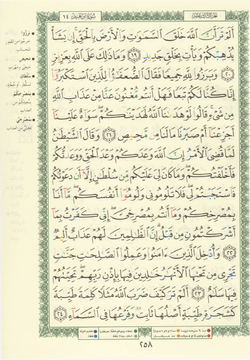 أَلَمْ تَرَ أَنَّ ٱللَّهَ خَلَقَ ٱلسَّمَٰوَٰتِ وَٱلْأَرْضَ بِٱلْحَقِّ إِن يَشَأْ
يُذْهِبْكُمْ وَيَأْتِ بِخَلْقٍ جَدِيدٍ ١٩ وَمَا ذَٰلِكَ عَلَى ٱللَّهِ بِعَزِيزٍ
٢٠ وَبَرَزُوا۟ لِلَّهِ جَمِيعًا فَقَالَ ٱلضُّعَفَٰٓؤُا۟ لِلَّذِينَ ٱسْتَكْبَرُوٓا۟
إِنَّا كُنَّا لَكُمْ تَبَعًا فَهَلْ أَنتُم مُّغْنُونَ عَنَّا مِنْ عَذَابِ ٱللَّهِ
مِن شَىْءٍ قَالُوا۟ لَوْ هَدَىٰنَا ٱللَّهُ لَهَدَيْنَٰكُمْ سَوَآءٌ عَلَيْنَآ
أَجَزِعْنَآ أَمْ صَبَرْنَا مَا لَنَا مِن مَّحِيصٍ ٢١ وَقَالَ ٱلشَّيْطَٰنُ
لَمَّا قُضِىَ ٱلْأَمْرُ إِنَّ ٱللَّهَ وَعَدَكُمْ وَعْدَ ٱلْحَقِّ وَوَعَدتُّكُمْ
فَأَخْلَفْتُكُمْ وَمَا كَانَ لِىَ عَلَيْكُم مِّن سُلْطَٰنٍ إِلَّآ أَن دَعَوْتُكُمْ
فَٱسْتَجَبْتُمْ لِى فَلَا تَلُومُونِى وَلُومُوٓا۟ أَنفُسَكُم مَّآ أَنَا۠
بِمُصْرِخِكُمْ وَمَآ أَنتُم بِمُصْرِخِىَّ إِنِّى كَفَرْتُ بِمَآ
أَشْرَكْتُمُونِ مِن قَبْلُ إِنَّ ٱلظَّٰلِمِينَ لَهُمْ عَذَابٌ أَلِيمٌ
٢٢ وَأُدْخِلَ ٱلَّذِينَ ءَامَنُوا۟ وَعَمِلُوا۟ ٱلصَّٰلِحَٰتِ جَنَّٰتٍ
تَجْرِى مِن تَحْتِهَا ٱلْأَنْهَٰرُ خَٰلِدِينَ فِيهَا بِإِذْنِ رَبِّهِمْ تَحِيَّتُهُمْ
فِيهَا سَلَٰمٌ ٢٣ أَلَمْ تَرَ كَيْفَ ضَرَبَ ٱللَّهُ مَثَلًا كَلِمَةً طَيِّبَةً
كَشَجَرَةٍ طَيِّبَةٍ أَصْلُهَا ثَابِتٌ وَفَرْعُهَا فِى ٱلسَّمَآءِ ٢٤
٢٥٨